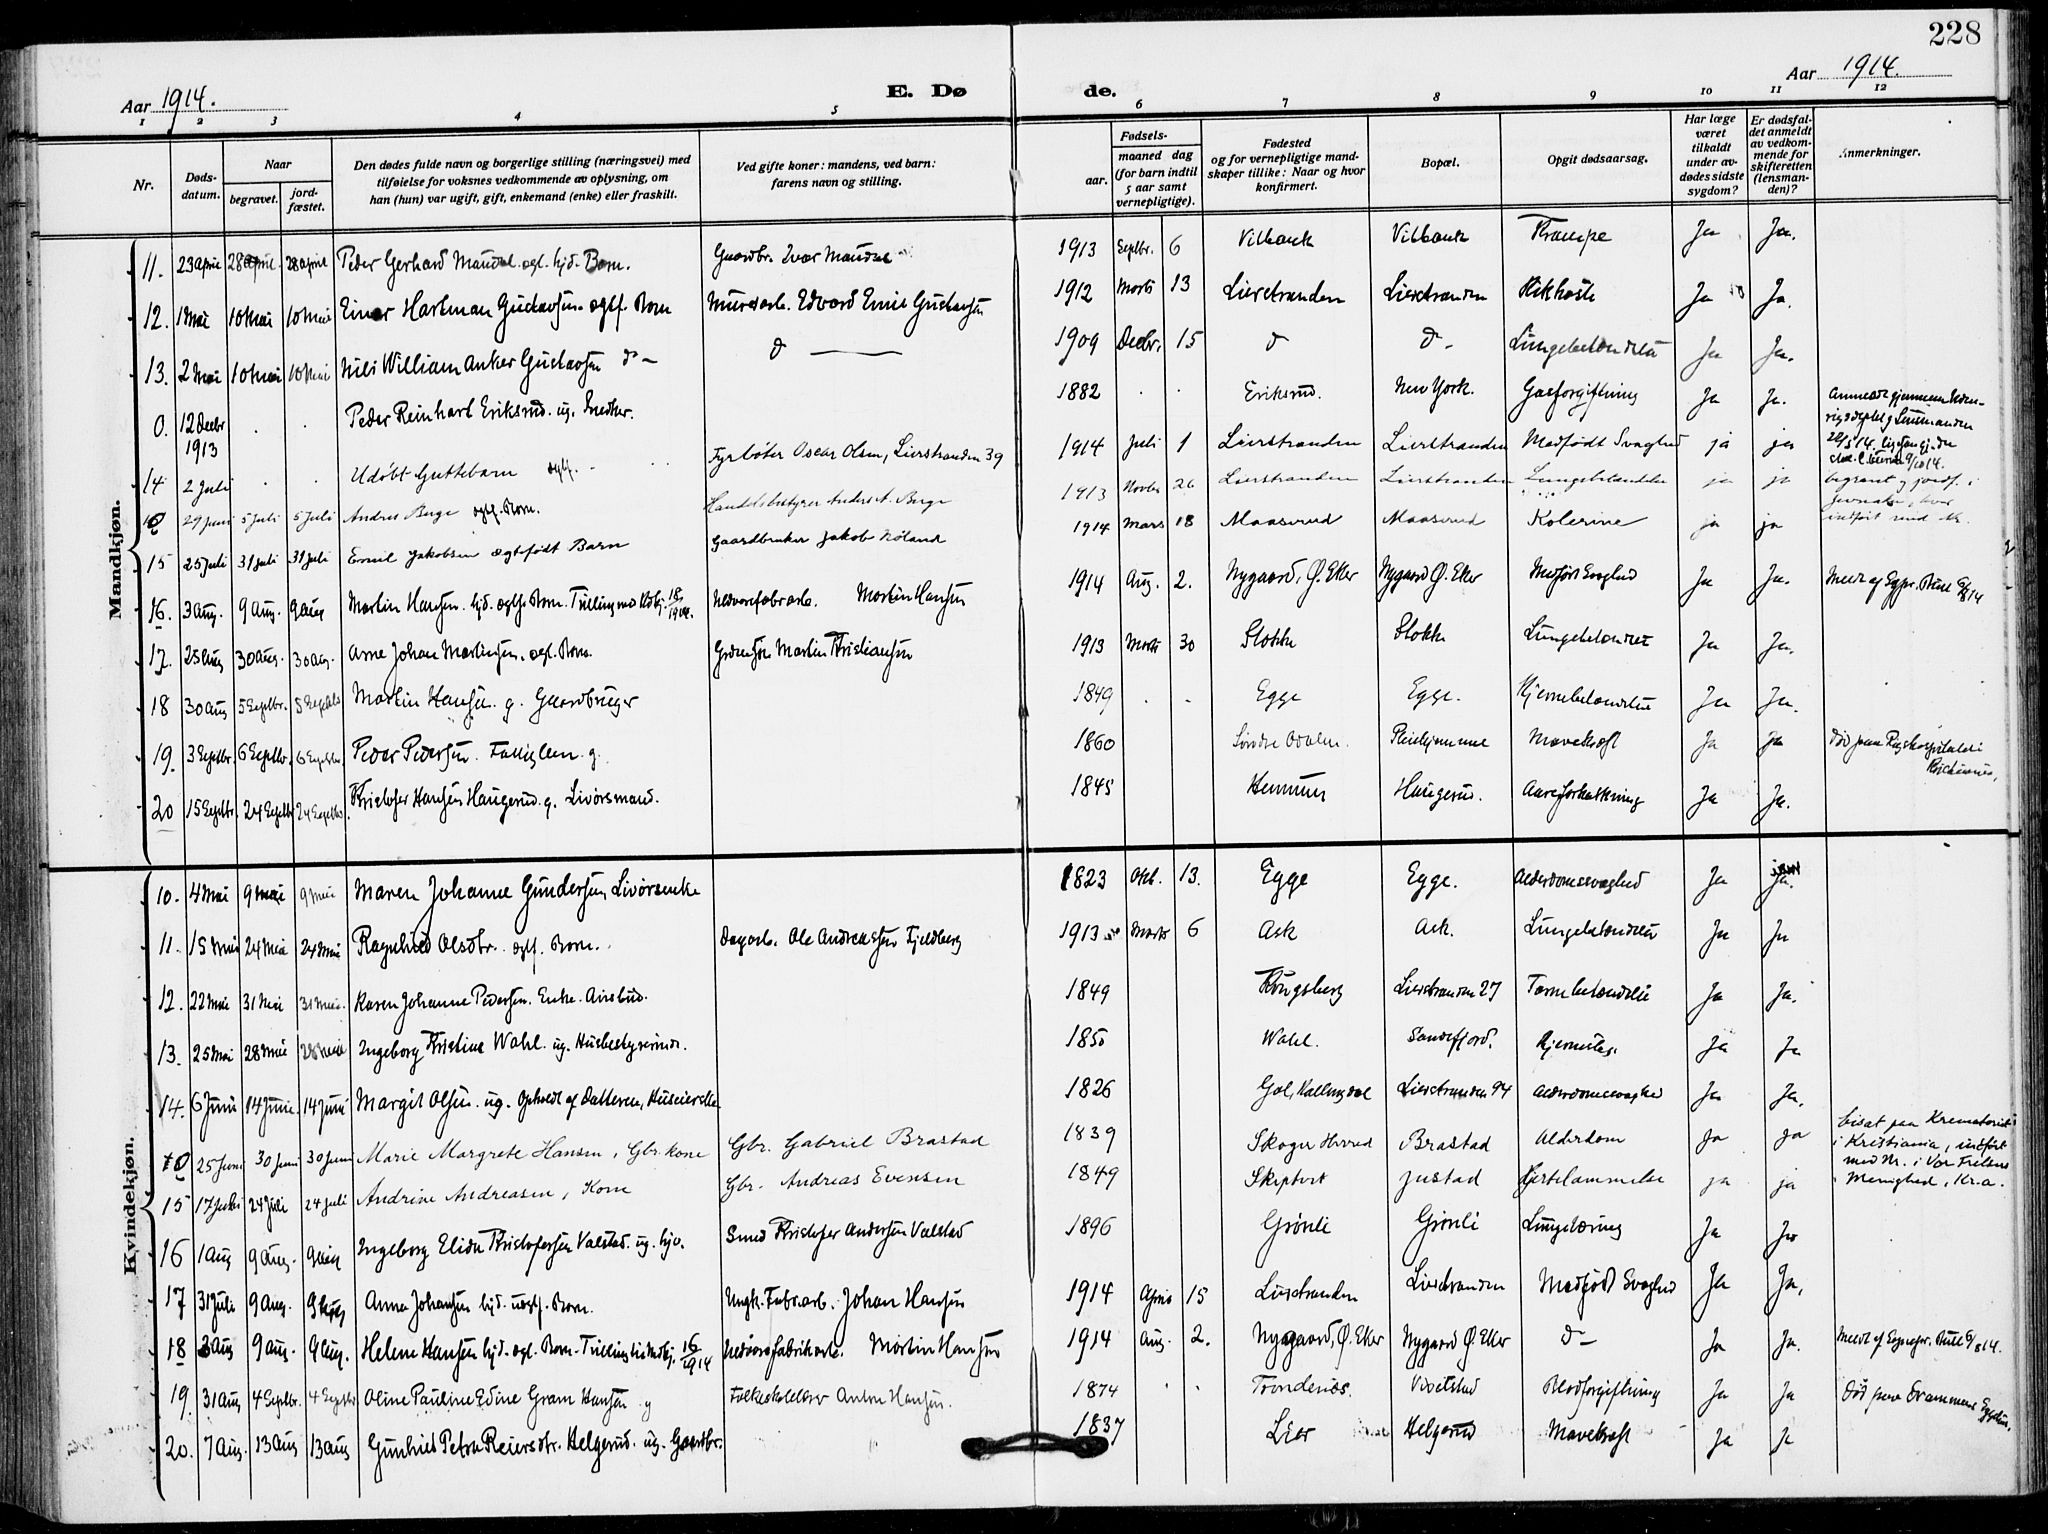 228
Aar 1914.
E. Dø de.
Aar 1914.
1 2 3 4 5 6 7 8 9 10 11 12
Nr.
Døds-
datum.
Naar
begravet.
jord-
fæstet.
Den dødes fulde navn og borgerlige stilling (næringsvei) med
tilføielse for voksnes vedkommende av oplysning, om
han (hun) var ugift, gift, enkemand (enke) eller fraskilt.
Ved gifte koner: mandens, ved barn:
farens navn og stilling.
Fødsels-
aar.
maaned dag
(for barn indtil
5 aar samt
vernepligtige).
Fødested
og for vernepligtige mand-
skaper tillike: Naar og hvor
konfirmert.
Bopæl.
Opgit dødsaarsag.
Har læge
været
tilkaldt
under av-
dødes sidste
sygdom?
Er dødsfal-
det anmeldt
av vedkom-
mende for
skifteretten
(lensman-
den)?
Anmerkninger.
Mandkjøn.
11. 23 april 28 april 28 april Peder Gerhard Maudal. egt. hjd. Barn. Gaardbr. Ivar Maudal 1913 Septbr. 6 Vilbank Vilbank Krampe Ja Ja.
12. 1 Mai 10 Mai 10 Mai Einar Hartman Gustavsen. egtf. Barn Murerarb. Edvard Emil Gustavsen 1912 Marts 13 Lierstranden Lierstranden Kikhoste Ja Ja.
13. 2 Mai 10 Mai 10 Mai Nils William Anker Gustavsen do do 1909 Decbr. 15 do do Lungebetændelse Ja Ja.
0. 12 Decbr 1913 . . Peder Reinhart Eriksrud. ug. Snedker. 1882 . . Eriksrud. New York. Gasforgiftning Ja Ja.
14 2 Juli . . Udøbt Guttebarn egtf. Fyrbøter Oscar Olsen, Lierstranden 39 1914 Juli 1 Lierstranden Lierstranden Medfødt Svaghed ja ja
0 29 juni 5 juli 5 juli Andres Berge egtf. Barn. Handelsbestyrer Anders A. Berge 1913 Novbr 26 Lierstranden Lierstranden Lungebetændelse ja ja begravet og jordf. i
15 25 juli 31 juli 31 juli Emil Jakobsen egtefødt Barn Gaardbruker Jakob Nøland 1914 Mars 18 Maasrud Maasrud Kolerine ja ja
16. 3 Aug. 9 Aug. 9 Aug Martin Hansen. hjd. egtf. Barn. Tvilling med Kvkj. 18/1914. Uldvarefabrarb. Martin Hansen 1914 Aug. 2. Nygaard, Ø. Eker Nygaard Ø. Eker Medført Svaghed Ja Ja.
17. 25 Aug 30 Aug. 30 Aug. Arne Johan Martinsen. egt. Barn. Martin Kristiansen 1913 Marts 30 Stokke Stokke Lungebetændelse Ja Ja.
18 30 Aug 5 Septbr. 5 Septbr Martin Hansen. g. Gaardbruger 1849 . . Egge Egge. Hjernebetændelse Ja Ja.
19. 3 Septbr. 6 Septbr. 6 Septbr. Peder Pedersen. Fattiglem. g. 1860 Søndre Odalen. Pleiehjemmet Mavekræft Ja Ja Død paa Rigshospitalet i
Kristiania.
20 15 Septbr. 24 Septbr 24 Septbr. Kristofer Hansen Haugerud. g. Livørsmand. 1845 Hennum Haugerud. Aareforkalkning Ja Ja.
Kvindekjøn.
10. 4 Mai 9 Mai 9 Mai Maren Johanne Gundersen, Livørsenke 1823 Okt. 13. Egge Egge. Alderdomssvaghed Ja Ja.
11. 15 Mai 24 Mai 24 Mai Ragnhild Olsdtr. egtf. Barn. Dagarb. Ole Andreassen Fjeldberg 1913 Marts 6 Ask Ask. Lungebetændelse Ja Ja
12. 22 Mai 31 Mai 31 Mai. Karen Johanne Pedersen. Enke. 1849 Kongsberg Lierstranden 27 Tarmbetændelse Ja Ja.
13. 25 Mai 28 Mai 28 Mai Ingeborg Kristine Wahl. ug. Husbestyrerinde. 1850 Wahl. Sandefjord. Ja Ja
14. 6 Juni 14 Juni. 14 Juni Margit Olsen. ug. Opholdt af Datteren, 1826 Gol, Hallingdal Lierstranden 94 Alderdomssvaghed Ja Ja.
0 25 Juni 30 Juni 30 Juni Marie Margrete Hansen, Gbr. kone Gbr. Gabriel Brastad 1839 Skoger Herred Brastad Alderdom ja ja bisat paa Krematoriet
i Kristiania, indført
med Nr. i Vor Frelsers
Menighed, Kr.a.
15 17 Juli 24 juli 24 juli Andrine Andreasen, Kone Gbr. Andreas Evensen 1849 Skiptvet Justad Hjertelammelse ja ja
16 1 Aug 9 Aug. 9 Aug Ingeborg Elida Kristofersen Valstad. ug. hjv. Smed Kristofer Andersen Valstad 1896 Grønli Grønli Lungetæring Ja Ja
17 31 Juli 9 Aug. 9 Aug Anna Johansen hjd. uegtf. Barn. Ungk. Fabrarb. Johan Hansen 1914 April 15 Lierstranden Lierstranden Medfødt Svaghed Ja Ja.
18 3 Aug 9 Aug. 9 Aug. Helene Hansen hjd. egt. Barn. Tvilling til Mdkj. 16/1914 Uldvarefabrikarb. Martin Hansen 1914 Aug. 2. Nygaard, Ø. Eker Nygaard Ø. Eker do Ja Ja.
19. 31 Aug 4 Septbr. 4 Septbr Oline Pauline Edine Gram Hansen g Folkeskolelærer Anton Hansen. 1874 . . Trondenes. Vivelstad Blodforgiftning Ja Ja Død paa Drammens Sygehus.
20. 7 Aug. 13 Aug 13 Aug Gunhild Petra Reiersdtr. Helgerud. ug. Gaardbr. 1837 Lier Helgerud Mavekræft Ja Ja